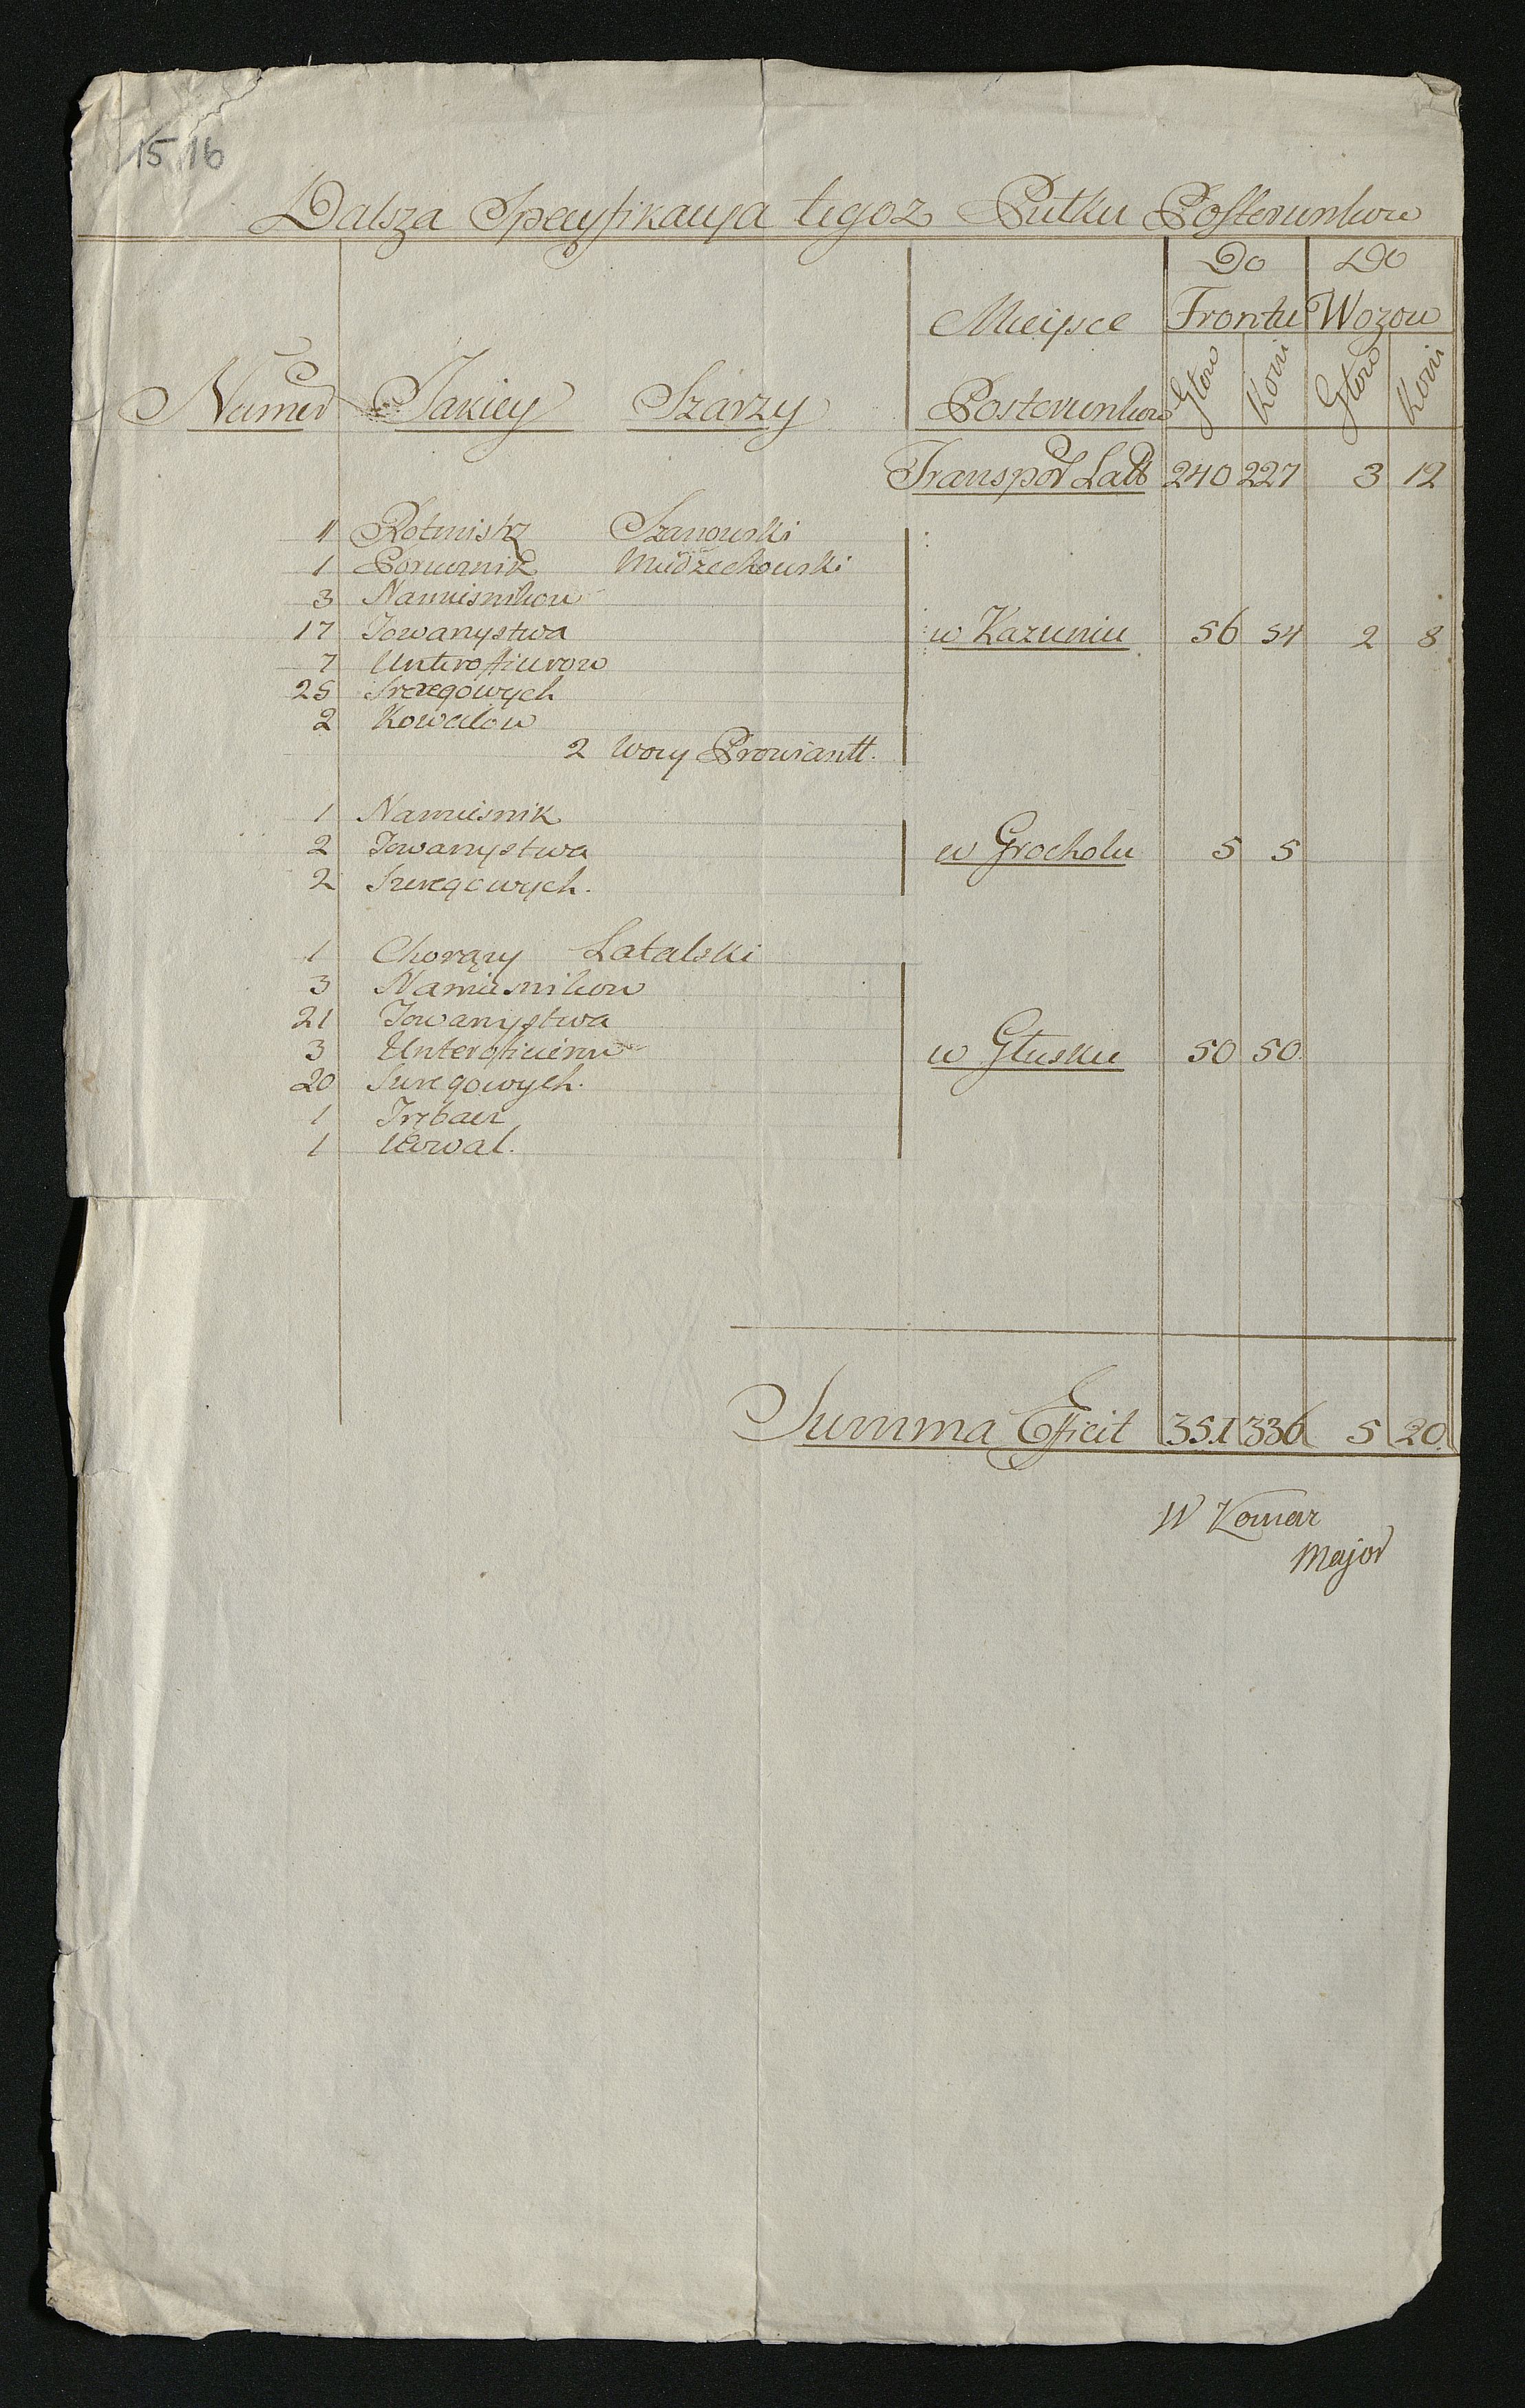 15 16
Dalsza Specyfikacyia tegoz Pułku Posterunkow
Do Do
Mieysce Frontu Wozow
Numer Jakiey Szarzy Posterunkow Głow Koni Głow Koni
Transport Latt 240 227 3 12
1 Rotmistrz Szanowski
1 Porucznik
3 Namiesnikow
17 Towarzystwa w Kazuniu 56 54 2 8
7 Unteroficerow
25 Szeregowych
2 Kowalow
2 Wozy Prowiantt.
1 Namiesnik
2 Towarzystwa w Grocholu 5 5
2 Szeregowych.
1 Chorąży Latalski
3 Namiesnikow
21 Towarzystwa
3 Unteroficerow w Głusku 50 50.
20 Szeregowych.
1 Trębacz
1 Kowal.
Summa Efficit 351 336 5 20.
W Komar
Major